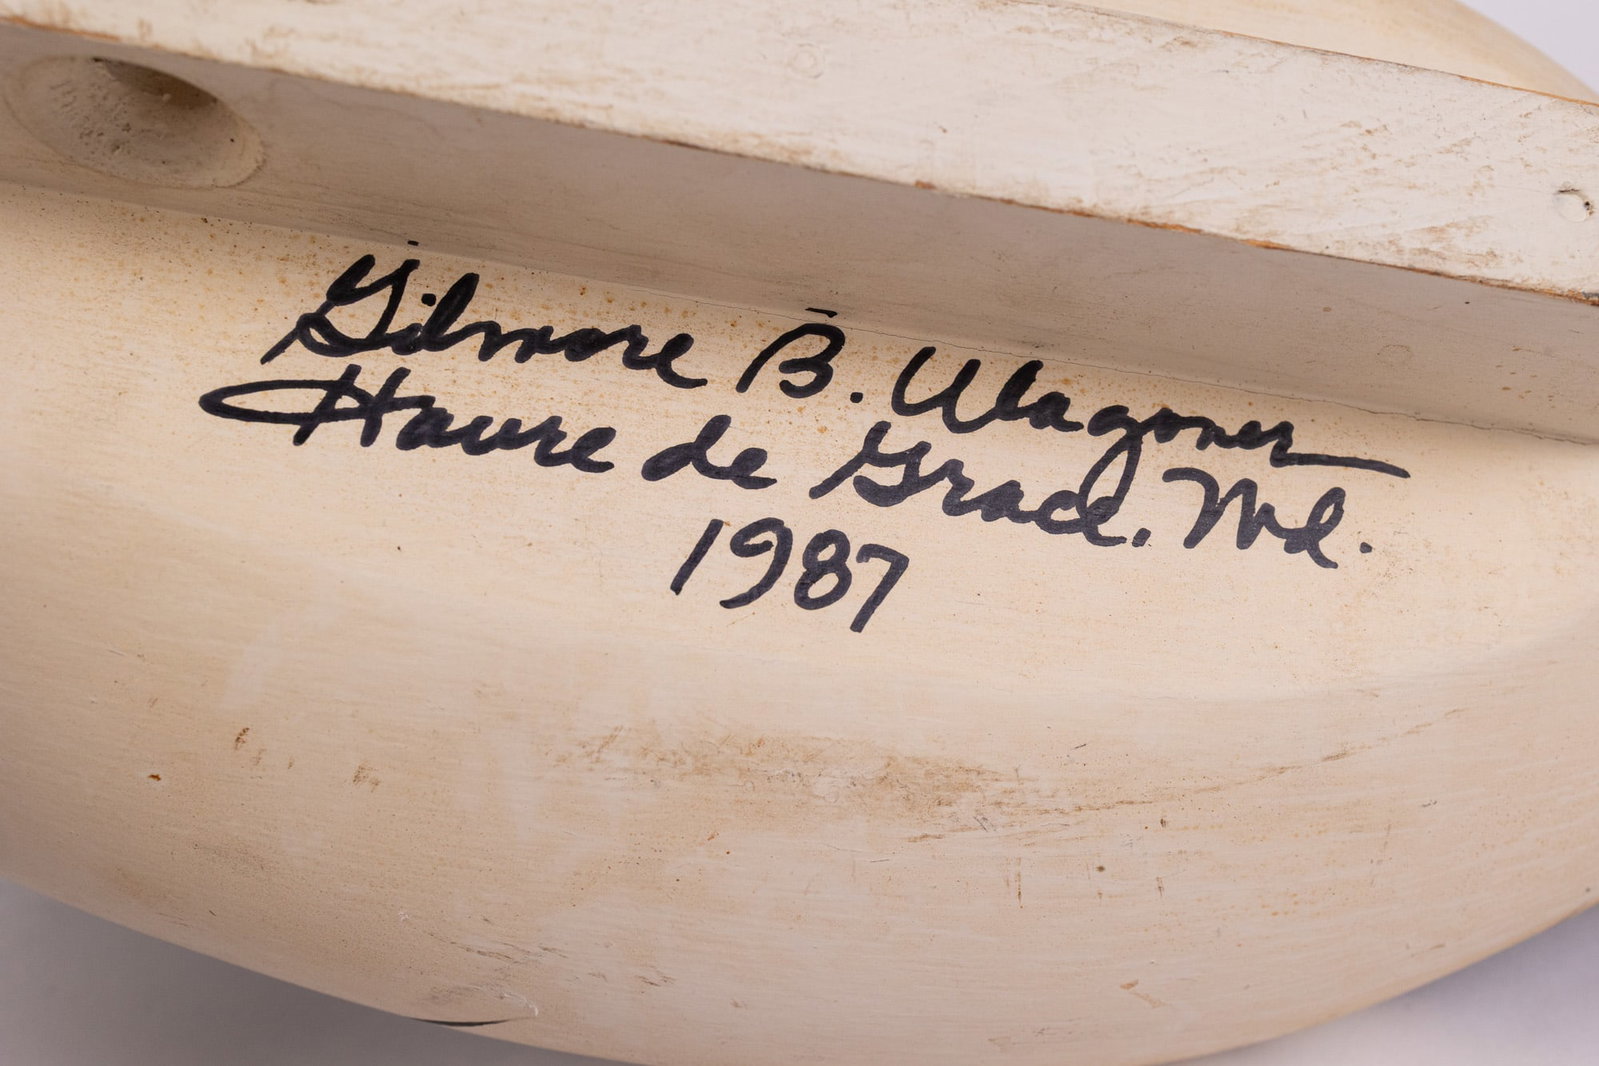 Gilmore B. Wagoner
Havre de Grace, Md.
1987